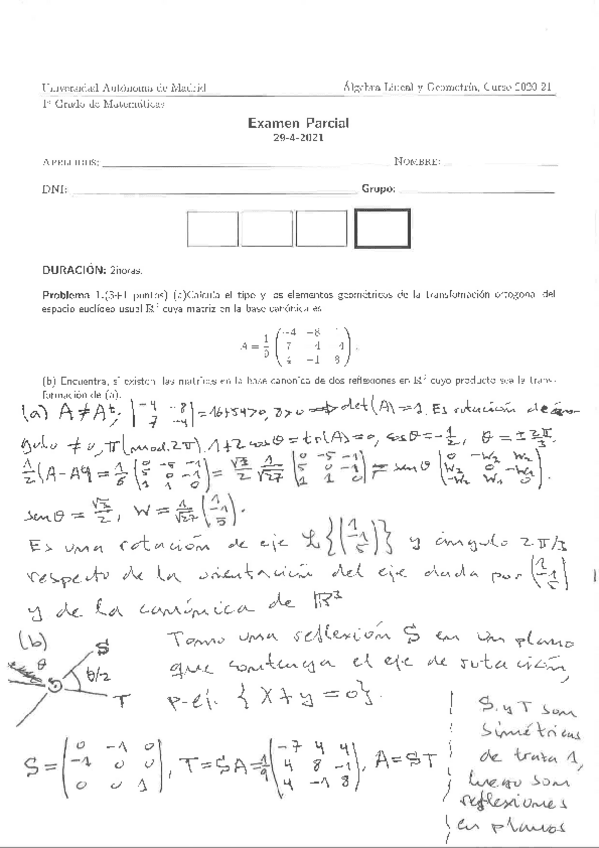 Universidad Autónoma de Madrid Álgebra Lineal y Geometría, Curso 2020-21
1º Grado de Matemáticas
Examen Parcial
29-4-2021
APELLIDOS: NOMBRE:
DNI: Grupo:
DURACIÓN: 2horas.
Problema 1.(3+1 puntos) (a)Calcula el tipo y los elementos geométricos de la transformación ortogonal del
espacio euclídeo usual ℝ³ cuya matriz en la base canónica es
A = 1/9 ( -4 -8 1
7 -4 4
4 -1 8 ) .
(b) Encuentra, si existen, las matrices en la base canónica de dos reflexiones en ℝ³ cuyo producto sea la trans-
formación de (a).
(a) A ≠ Aᵗ; | -4 -8 ; 7 -4 | = 16+54>0, 8>0 ⟹ det(A)=1. Es rotación de án-
gulo ≠ 0, π (mod. 2π). 1+2cosθ = tr(A) = 0, cosθ = -1/2, θ = ± 2π/3.
1/2 (A-Aᵗ) = 1/6 ( 0 -5 -1 ; 5 0 -1 ; 1 1 0 ) = √3/2 1/√27 ( 0 -5 -1 ; 5 0 -1 ; 1 1 0 ) = senθ ( 0 -w₃ w₂ ; w₃ 0 -w₁ ; -w₂ w₁ 0 ).
senθ = √3/2, W = 1/√27 ( 1 ; -1 ; 5 ).
Es una rotación de eje L{ ( 1 ; -1 ; 5 ) } y ángulo 2π/3
respecto de la orientación del eje dada por ( 1 ; -1 ; 5 )
y de la canónica de ℝ³
(b) Tomo una reflexión S en un plano
que contenga el eje de rotación,
p.ej. {x+y=0}.
S
θ
θ/2
S T
S = ( 0 -1 0 ; -1 0 0 ; 0 0 1 ), T = SA = 1/9 ( -7 4 4 ; 4 8 -1 ; 4 -1 8 ), A = ST
S y T son
simétricas
de traza 1,
luego son
reflexiones
en planos